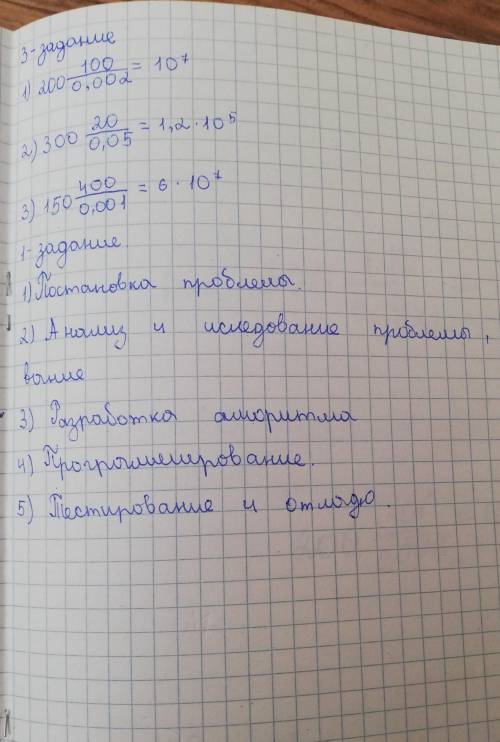 3-задание
1) 200 100/0,002 = 10⁷
2) 300 20/0,05 = 1,2·10⁵
3) 150 400/0,001 = 6·10⁷
1-задание.
1) Постановка проблемы.
2) Анализ и иследование проблемы,
вание
3) Разработка алгоритма
4) Программирование.
5) Тестирование и отладю.